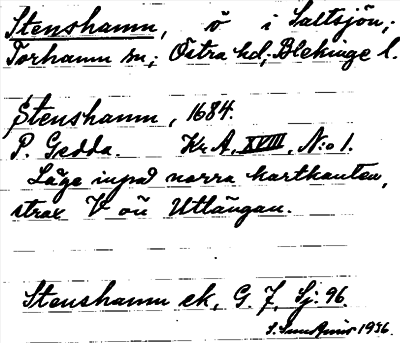 Stenshamn, ö i Saltsjön;
Torhamn sn; Östra hd; Blekinge l.
Stenshamn, 1684.
P. Gedda. Kr. A, XVIII, N:o 1.
Läge inpå norra kartkanten,
strax V om Utlängan.
Stenshamn ek, G. 7, Sj: 96.
1936.